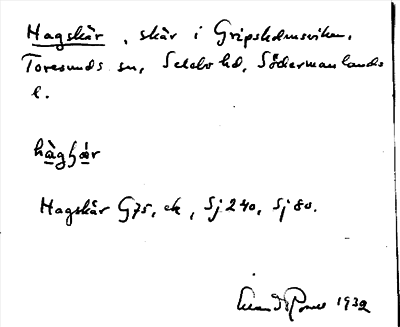 Hagskär, skär i Gripsholmsviken,
Toresunds sn, Selebo hd, Södermanlands
l.
Hagskär G75, ek, Sj 240, Sj 80.
1932